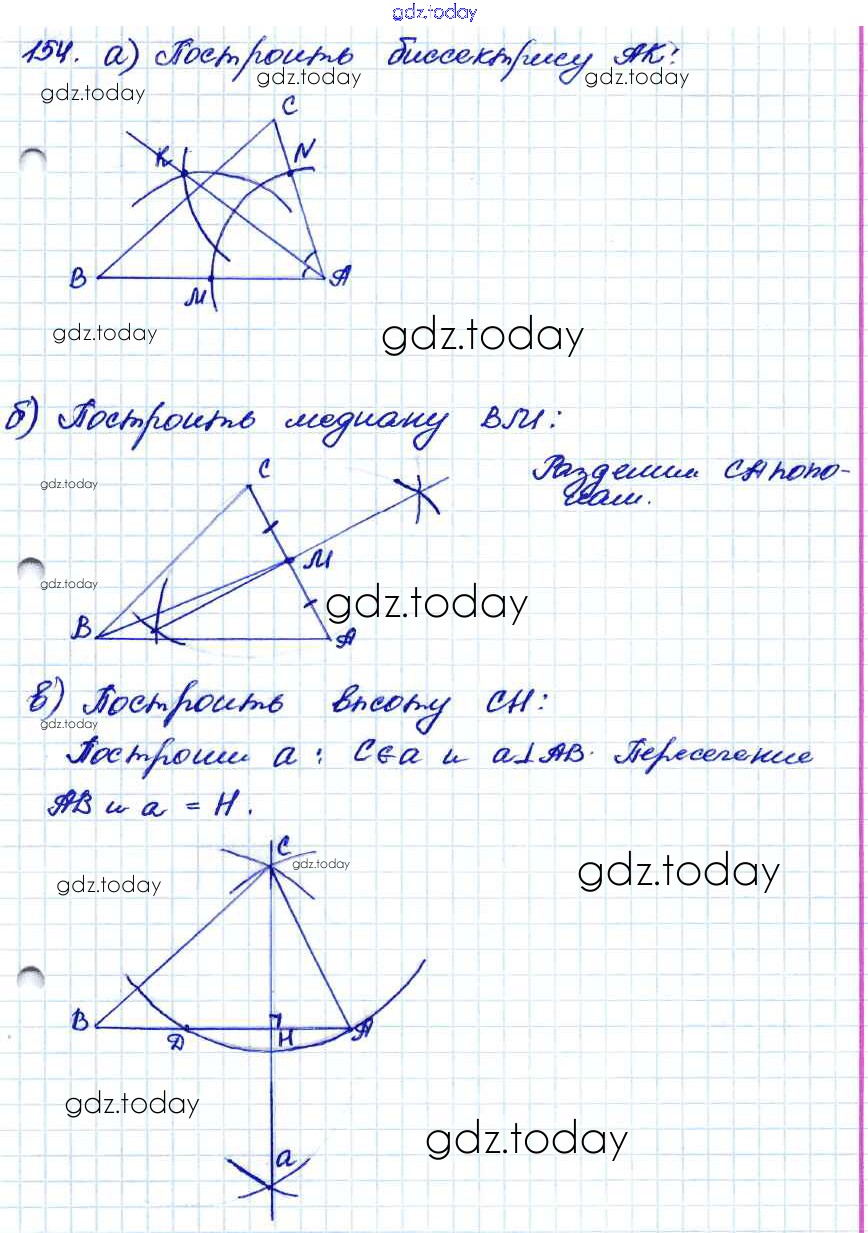 gdz.today
154. а) Построить биссектрису АК:
gdz.today gdz.today gdz.today
C
K N
B M A
gdz.today gdz.today
б) Построить медиану ВМ:
gdz.today C Разделим СА попо-
лам.
M
gdz.today gdz.today
B A
в) Построить высоту СН:
gdz.today
Построим а : С∈а и а⊥АВ. Пересечение
АВ и а = Н.
C
gdz.today gdz.today gdz.today
B D H A
gdz.today gdz.today
a